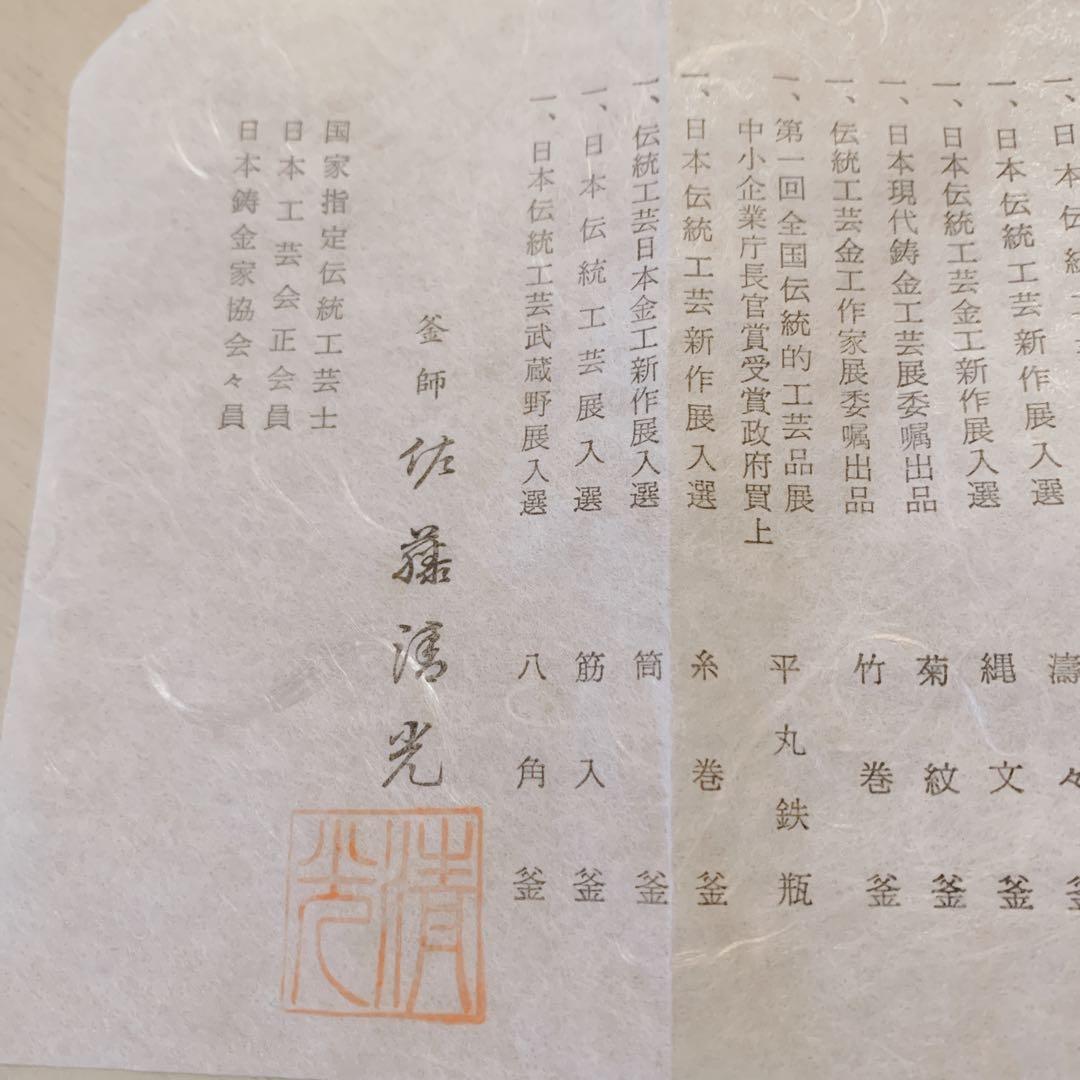 一、日本伝統工芸 濤々釜
一、日本伝統工芸新作展入選 縄文釜
一、日本伝統工芸金工新作展入選 菊紋釜
一、日本現代鋳金工芸展委嘱出品 竹巻釜
一、伝統工芸金工作家展委嘱出品
一、第一回全国伝統的工芸品展 平丸鉄瓶
中小企業庁長官賞受賞政府買上
一、日本伝統工芸新作展入選 糸巻釜
一、伝統工芸日本金工新作展入選 筒釜
一、日本伝統工芸展入選 筋入釜
一、日本伝統工芸武蔵野展入選 八角釜
釜師 佐藤清光
清光
国家指定伝統工芸士
日本工芸会正会員
日本鋳金家協会々員